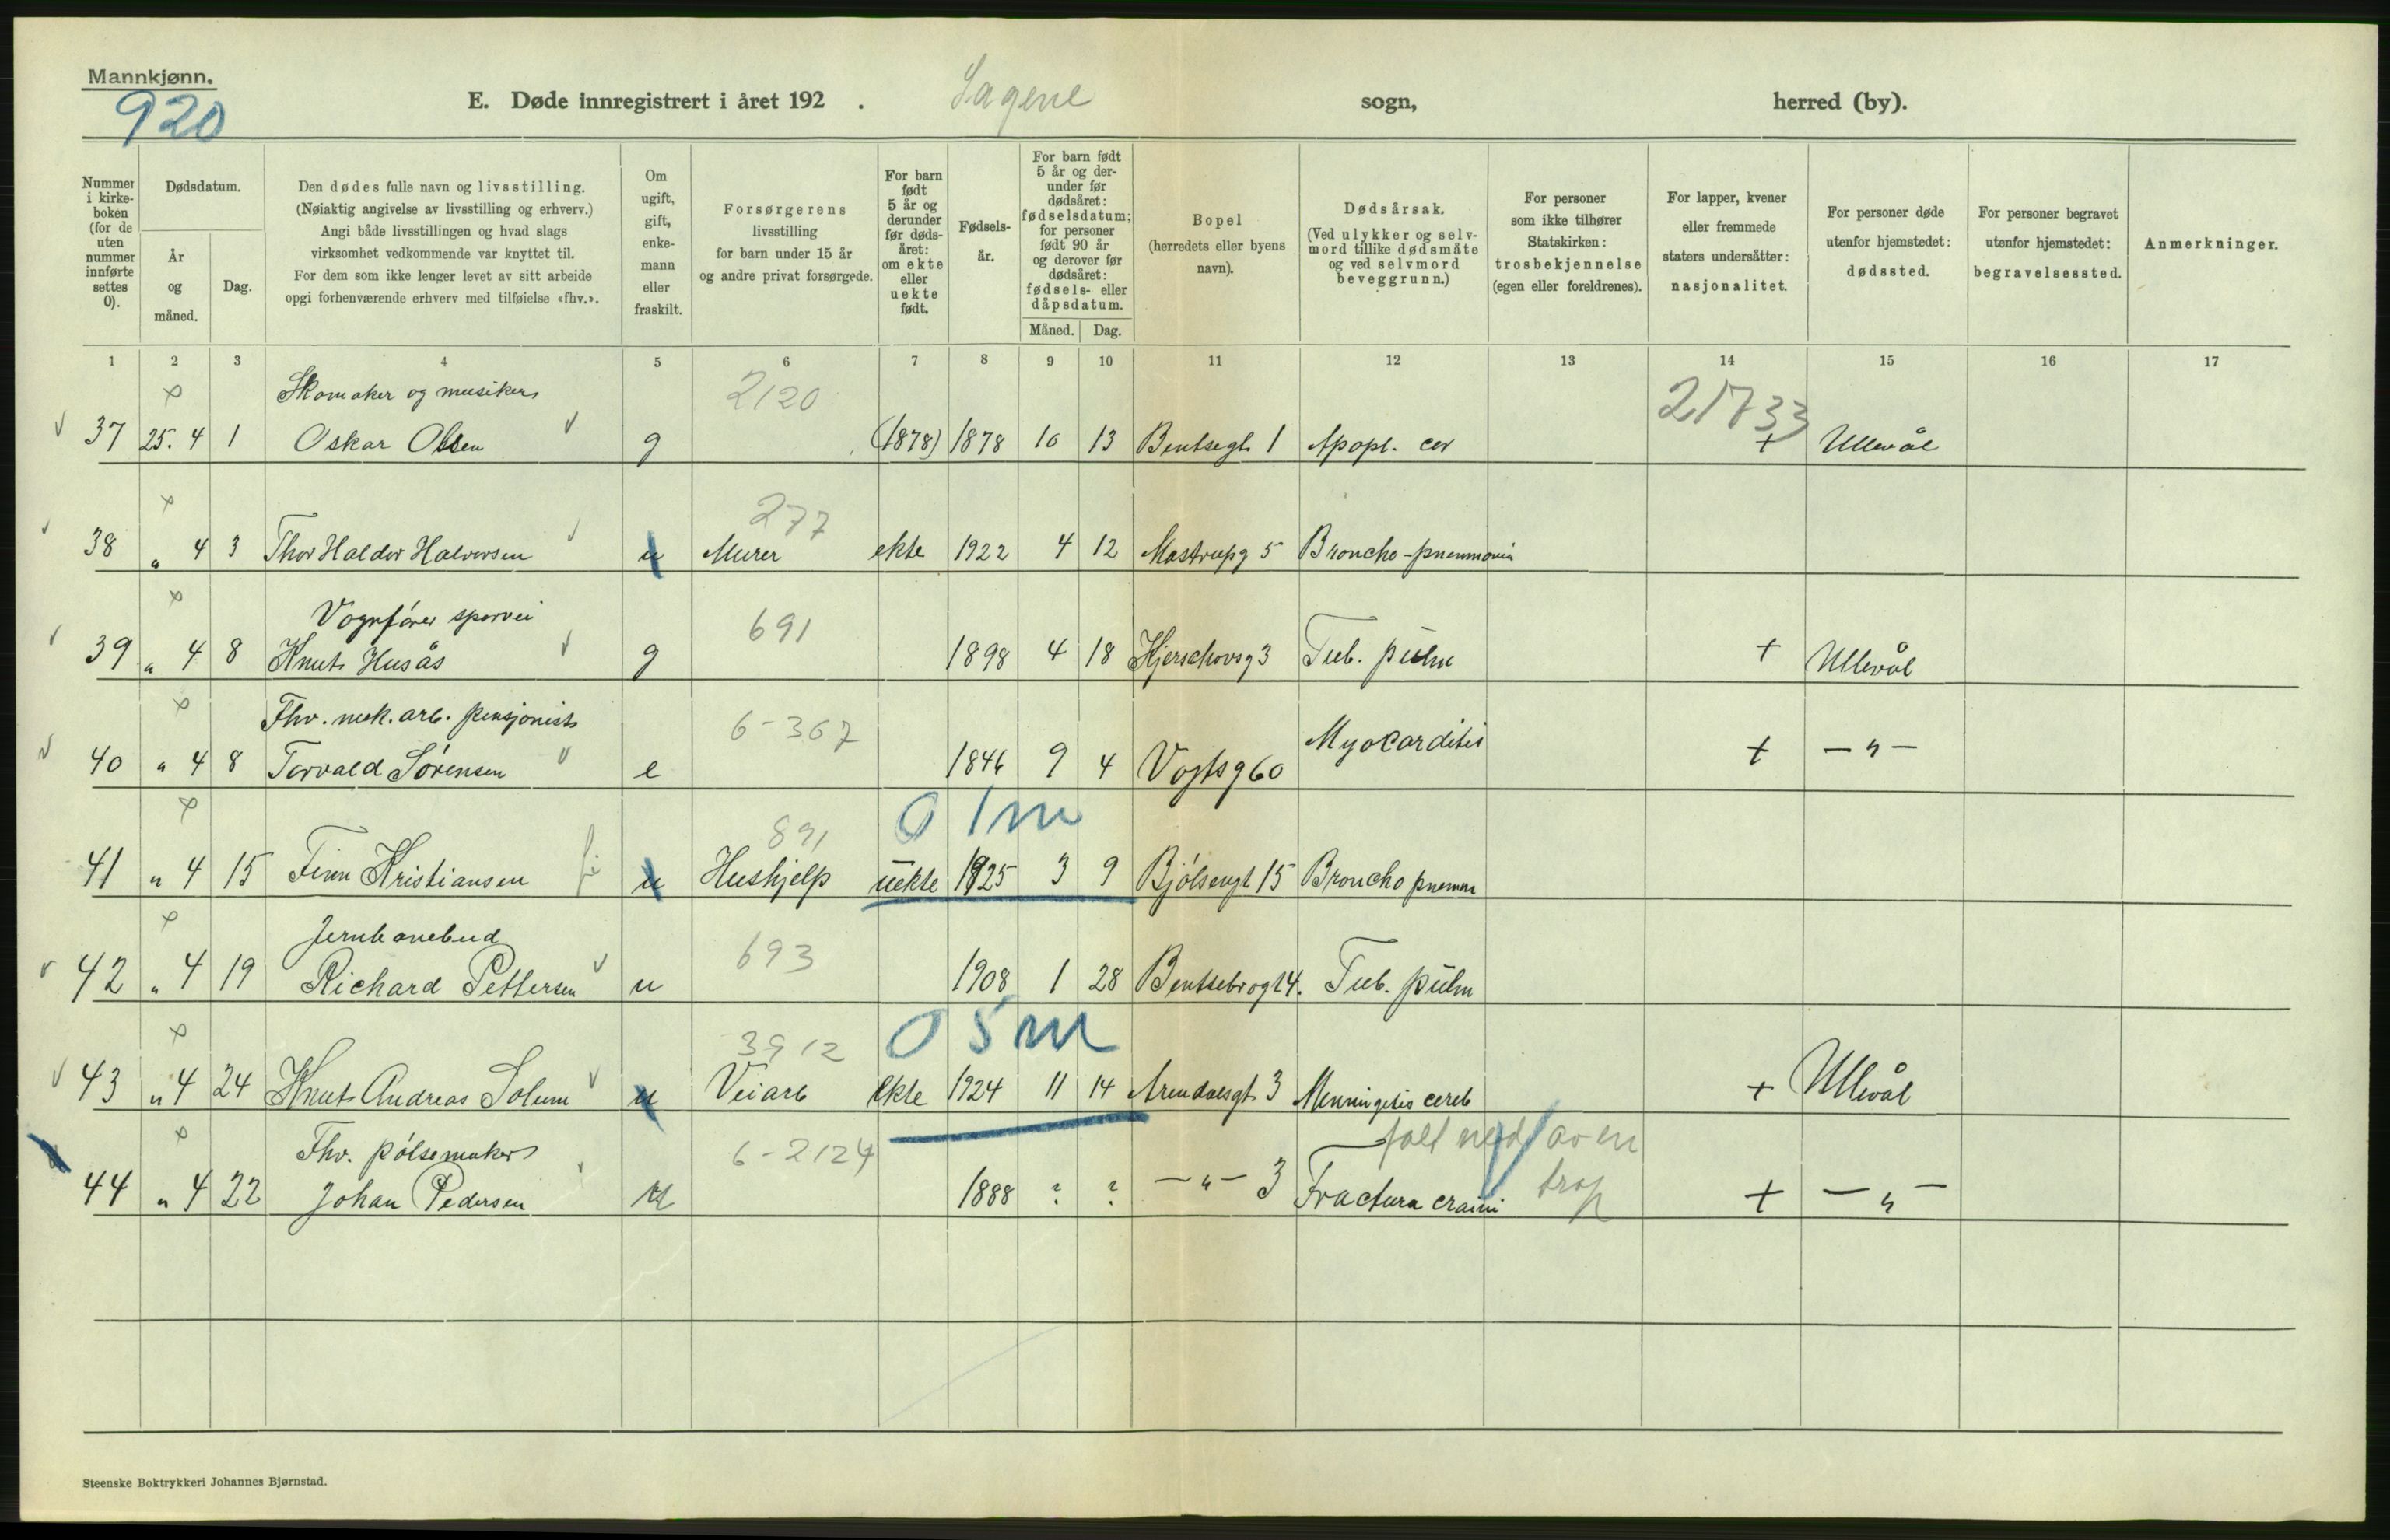 Mannkjønn.
920
E. Døde innregistrert i året 192 . Sagene sogn, herred (by).
Nummer i kirke- boken (for de uten nummer innførte settes 0).
Dødsdatum.
År og måned.
Dag.
Den dødes fulle navn og livsstilling.
(Nøiaktig angivelse av livsstilling og erhverv.)
Angi både livsstillingen og hvad slags
virksomhet vedkommende var knyttet til.
For dem som ikke lenger levet av sitt arbeide
opgi forhenværende erhverv med tilføielse «fhv.».
Om ugift, gift, enke- mann eller fraskilt.
Forsørgerens
livsstilling
for barn under 15 år
og andre privat forsørgede.
For barn født 5 år og derunder før døds- året: om ekte eller uekte født.
Fødsels- år.
For barn født 5 år og der- under før dødsåret: fødselsdatum; for personer født 90 år og derover før dødsåret: fødsels- eller dåpsdatum.
Måned. Dag.
Bopel
(herredets eller byens
navn).
Dødsårsak.
(Ved ulykker og selv-
mord tillike dødsmåte
og ved selvmord
beveggrunn.)
For personer
som ikke tilhører
Statskirken:
trosbekjennelse
(egen eller foreldrenes).
For lapper, kvener
eller fremmede
staters undersåtter:
nasjonalitet.
For personer døde
utenfor hjemstedet:
dødssted.
For personer begravet
utenfor hjemstedet:
begravelsessted.
Anmerkninger.
1 2 3 4 5 6 7 8 9 10 11 12 13 14 15 16 17
Skomaker og musiker 2120 21733
37 25. 4 1 Oskar Olsen g (1878) 1878 10 13 Bentsegt 1 Apopl. cer + Ullevål
277
38 " 4 3 Thor Haldor Halvorsen u Murer ekte 1922 4 12 Mastrupg 5 Broncho-pneumonia
Vognfører sporvei 691
39 " 4 8 Knut Husås g 1898 4 18 Hjerschovsg 3 Tub. pulm + Ullevål
Fhv. mek. arb. pensjonist 6-367
40 " 4 8 Torvald Sörensen e 1846 9 4 Vogtsg 60 Myocarditis + — " —
891 0 1 m
41 " 4 15 Finn Kristiansen u Hushjelp uekte 1925 3 9 Bjölsengt 15 Broncho pneum
Jernbanebud 693
42 " 4 19 Richard Pettersen u 1908 1 28 Bentsebrogt 4. Tub. pulm
3912 0 5 m
43 " 4 24 Knut Andreas Solum u Veiarb ekte 1924 11 14 Arendalsgt 3 Menningitis cereb + Ullevål
Fhv. pölsemaker 6-2124 falt ned av en
44 " 4 22 Johan Pedersen u 1888 ? ? — " — 3 Fractura cranii trap + — " —
Steenske Boktrykkeri Johannes Bjørnstad.